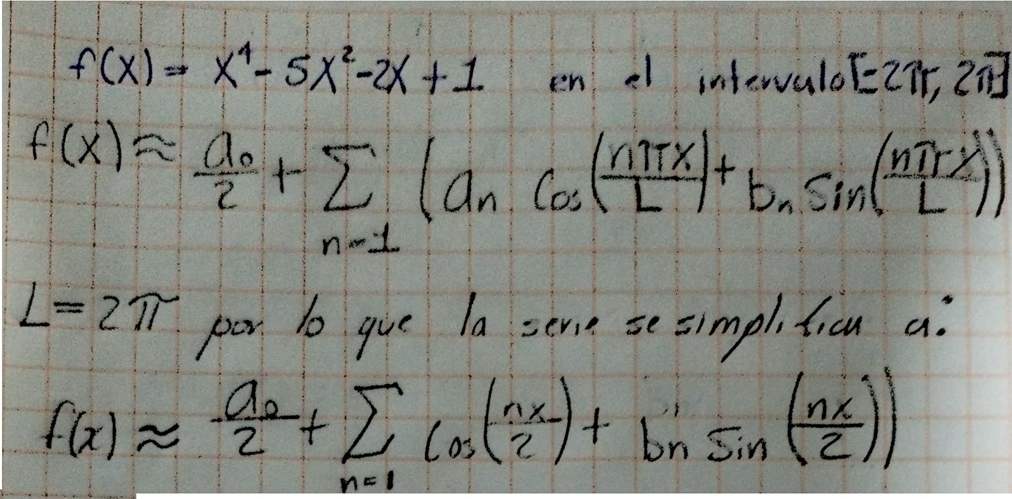 f(x) = x⁴ - 5x² - 2x + 1 en el intervalo [-2π, 2π]
f(x) ≈ a₀/2 + ∑ n=1 (an cos(nπx/L) + bn sin(nπx/L))
L = 2π por lo que la serie se simplifica a:
f(x) ≈ a₀/2 + ∑ n=1 cos(nx/2) + bn sin(nx/2))